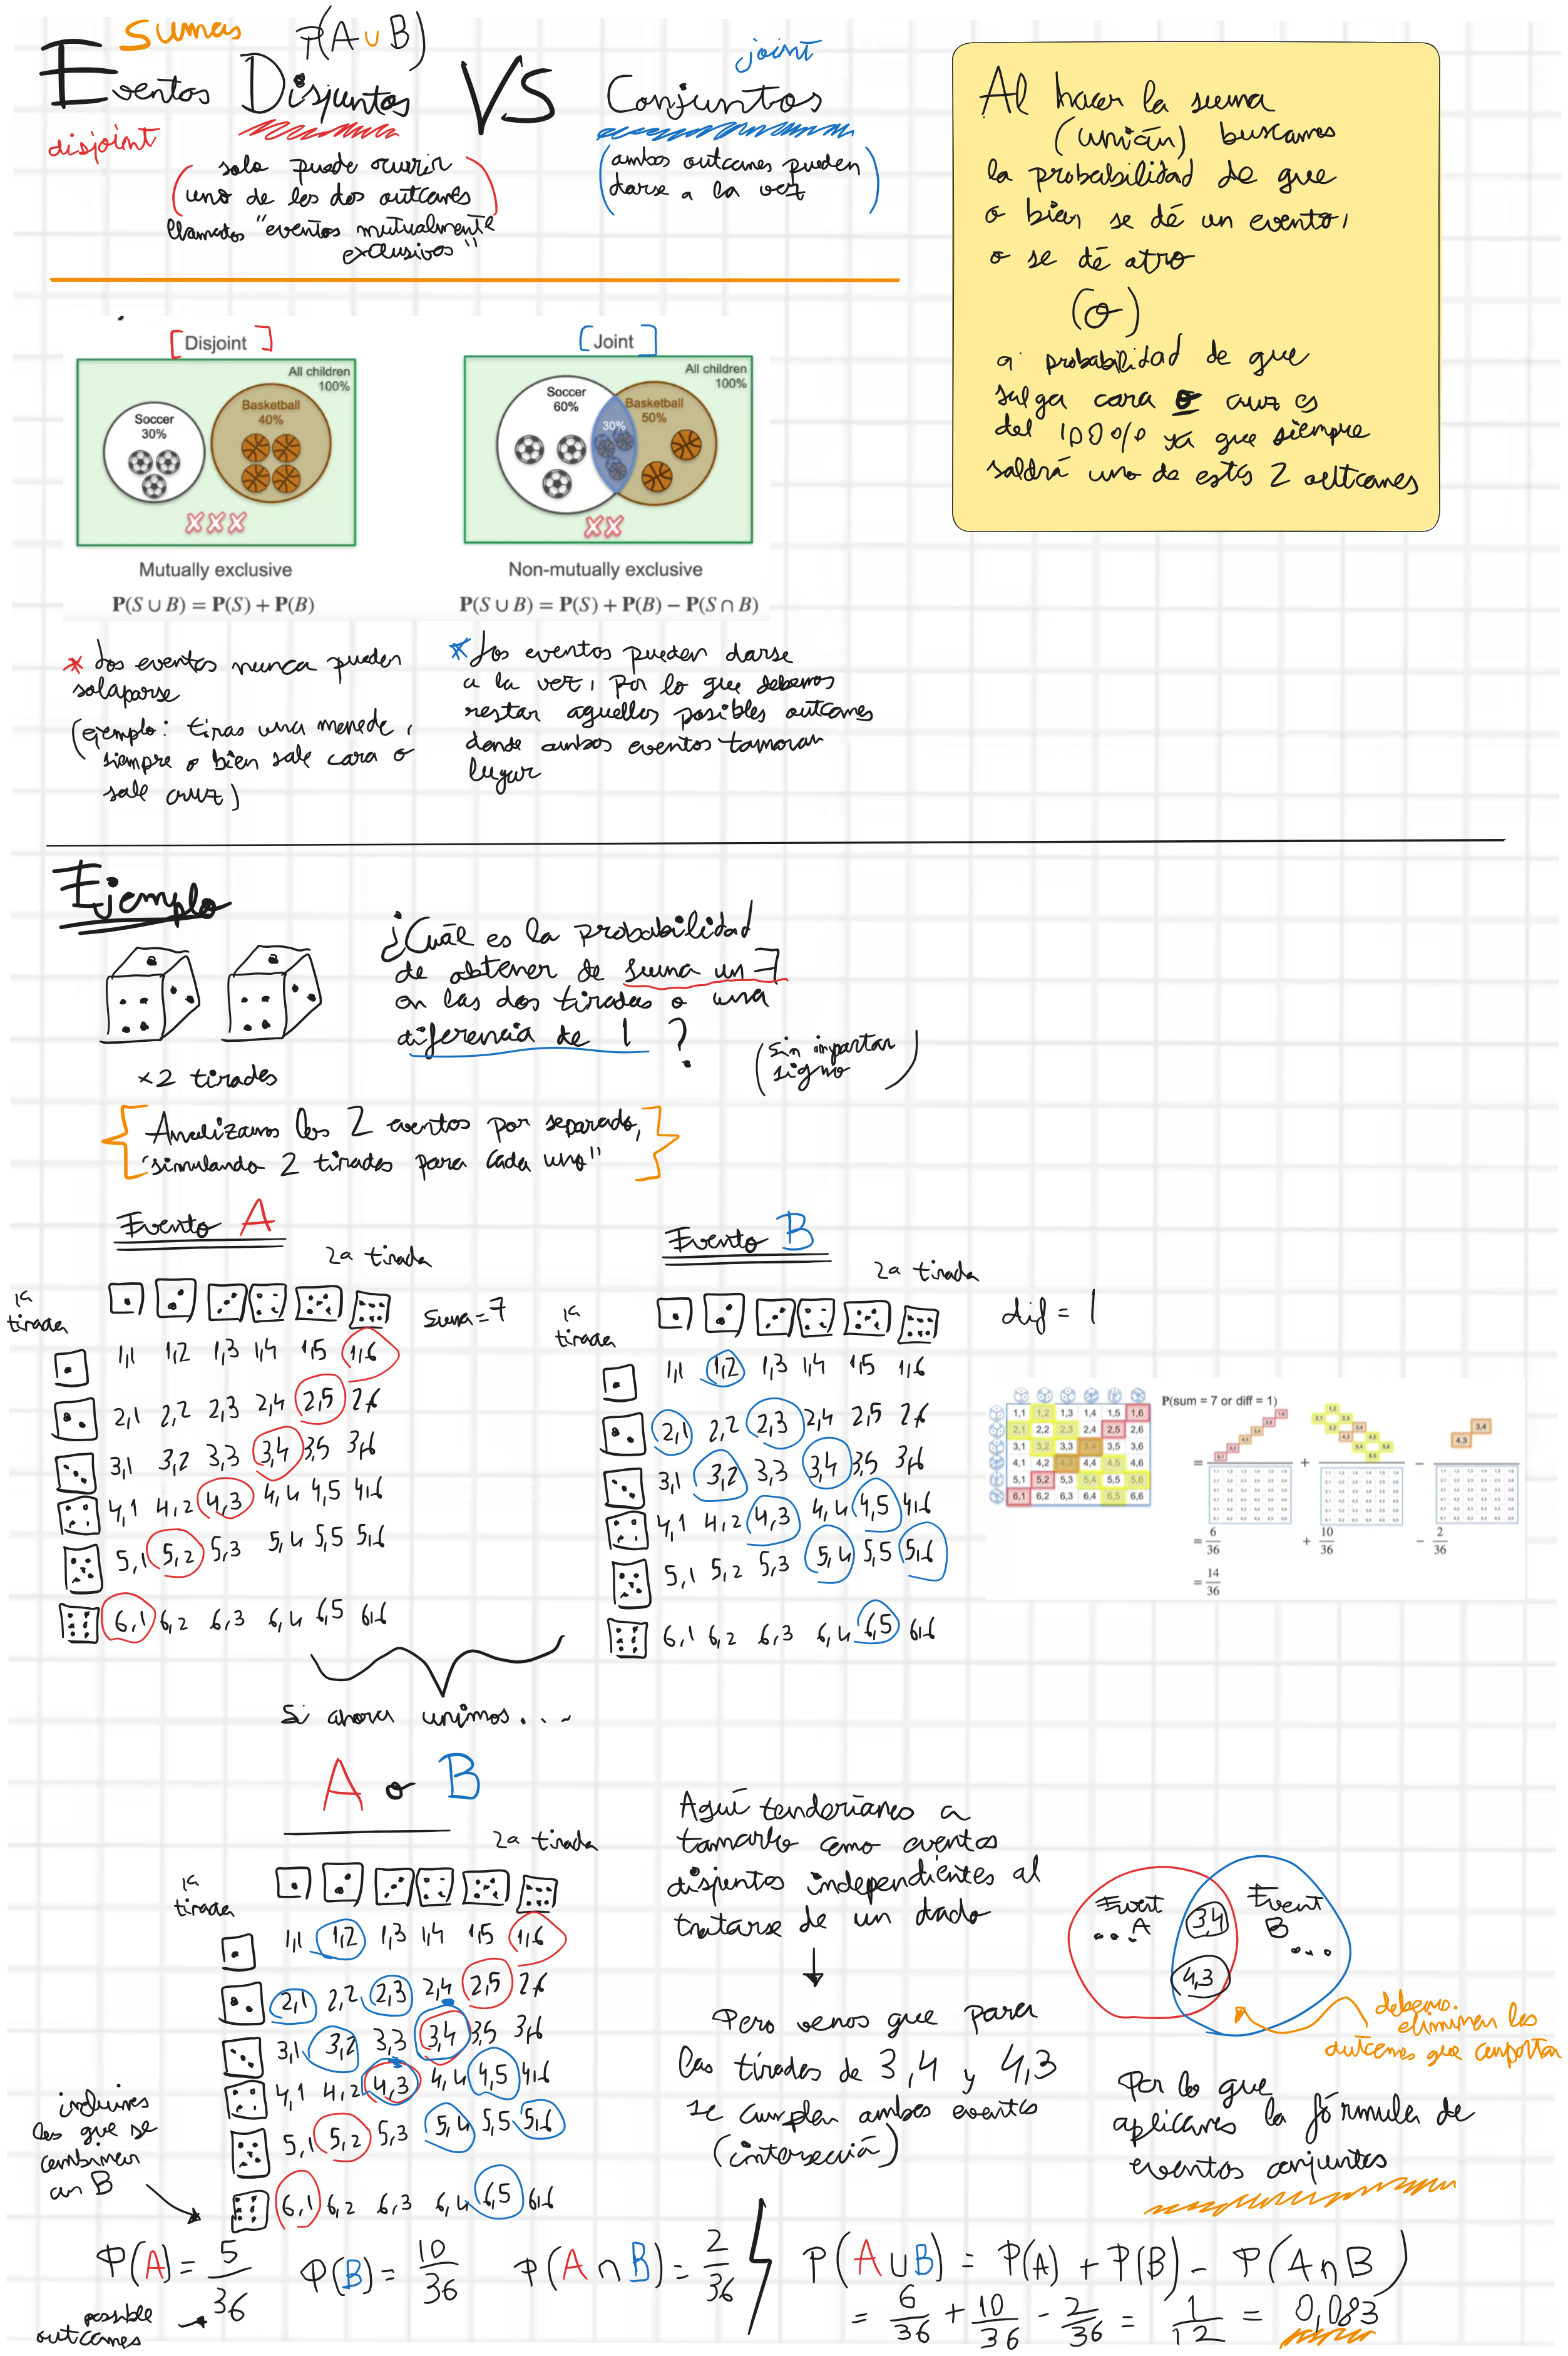 Sumas P(A∪B)
Eventos Disjuntos VS Conjuntos
disjoint
joint
(solo puede ocurrir
uno de los dos outcomes)
llamados "eventos mutualmente
exclusivos"
(ambos outcomes pueden
darse a la vez)
Al hacer la suma
(unión) buscamos
la probabilidad de que
o bien se dé un evento,
o se dé otro
(o)
probabilidad de que
salga cara o cruz es
del 100% ya que siempre
saldrá uno de estos 2 outcomes
[Disjoint]
All children
100%
Soccer
30%
Basketball
40%
Mutually exclusive
P(S ∪ B) = P(S) + P(B)
[Joint]
All children
100%
Soccer
60%
Basketball
50%
30%
Non-mutually exclusive
P(S ∪ B) = P(S) + P(B) − P(S ∩ B)
* Los eventos nunca pueden
solaparse
(ejemplo: tiras una moneda,
siempre o bien sale cara o
sale cruz)
* Los eventos pueden darse
a la vez, por lo que debemos
restar aquellos posibles outcomes
donde ambos eventos tomoran
lugar
Ejemplo
x2 tirades
¿Cuál es la probabilidad
de obtener de suma un 7
en las dos tiradas o una
diferencia de 1 ?
(sin importar
signo)
{Analizamos los 2 eventos por separado,
"simulando 2 tirados para cada uno"}
Evento A
2a tirada
1a
tirada
suma=7
1,1 1,2 1,3 1,4 1,5 1,6
2,1 2,2 2,3 2,4 2,5 2,6
3,1 3,2 3,3 3,4 3,5 3,6
4,1 4,2 4,3 4,4 4,5 4,6
5,1 5,2 5,3 5,4 5,5 5,6
6,1 6,2 6,3 6,4 6,5 6,6
Evento B
2a tirada
1a
tirada
dif = 1
1,1 1,2 1,3 1,4 1,5 1,6
2,1 2,2 2,3 2,4 2,5 2,6
3,1 3,2 3,3 3,4 3,5 3,6
4,1 4,2 4,3 4,4 4,5 4,6
5,1 5,2 5,3 5,4 5,5 5,6
6,1 6,2 6,3 6,4 6,5 6,6
1,1 1,2 1,3 1,4 1,5 1,6
2,1 2,2 2,3 2,4 2,5 2,6
3,1 3,2 3,3 3,4 3,5 3,6
4,1 4,2 4,3 4,4 4,5 4,6
5,1 5,2 5,3 5,4 5,5 5,6
6,1 6,2 6,3 6,4 6,5 6,6
P(sum = 7 or diff = 1)
3,4
4,3
= + −
= 6/36 + 10/36 − 2/36
= 14/36
Si ahora unimos...
A o B
2a tirada
1a
tirada
1,1 1,2 1,3 1,4 1,5 1,6
2,1 2,2 2,3 2,4 2,5 2,6
3,1 3,2 3,3 3,4 3,5 3,6
4,1 4,2 4,3 4,4 4,5 4,6
5,1 5,2 5,3 5,4 5,5 5,6
6,1 6,2 6,3 6,4 6,5 6,6
Aquí tenderíamos a
tomarlo como eventos
disjuntos independientes al
tratarse de un dado
Pero vemos que para
las tirades de 3,4 y 4,3
se cumplen ambos eventos
(intersección)
Event
A
...
3,4
4,3
Event
B
...
debemos
eliminar los
outcomes que comportan
Por lo que
aplicamos la fórmula de
eventos conjuntos
incluimos
los que se
combinan
con B
P(A) = 5/36
possible
outcomes
P(B) = 10/36
P(A ∩ B) = 2/36
P(A∪B) = P(A) + P(B) − P(A∩B)
= 6/36 + 10/36 - 2/36 = 1/12 = 0,083